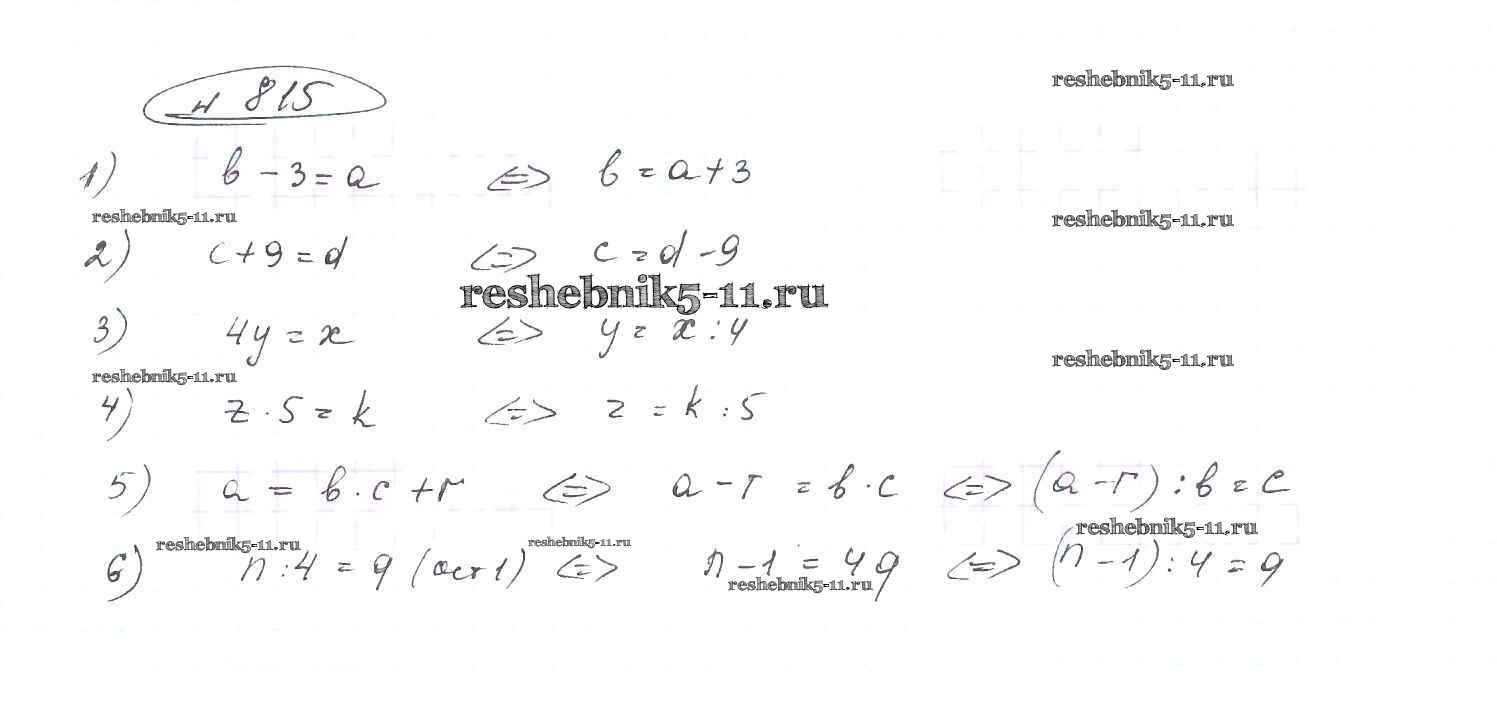 № 815
reshebnik5-11.ru
1) b - 3 = a <=> b = a + 3
reshebnik5-11.ru
reshebnik5-11.ru
2) c + 9 = d <=> c = d - 9
reshebnik5-11.ru
3) 4y = x <=> y = x : 4
reshebnik5-11.ru
reshebnik5-11.ru
4) z · 5 = k <=> z = k : 5
5) a = b · c + r <=> a - r = b · c <=> (a - r) : b = c
reshebnik5-11.ru
reshebnik5-11.ru
reshebnik5-11.ru
6) n : 4 = q (ост 1) <=> n - 1 = 4q <=> (n - 1) : 4 = q
reshebnik5-11.ru